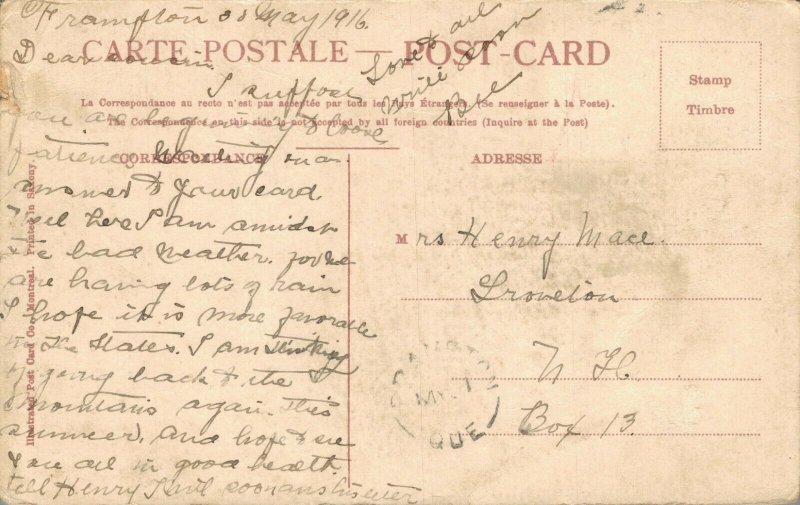 Frampton 30 May 1916.
Dear cousin
CARTE-POSTALE — POST-CARD
Love to all
Write soon
Bye
La Correspondance au recto n'est pas acceptée par tous les Pays Étrangers. (Se renseigner à la Poste).
The Correspondence on this side is not accepted by all foreign countries (Inquire at the Post)
Stamp
Timbre
CORRESPONDANCE
ADRESSE
I suppose
you are beginning to loose
patience waiting on an
answer to your card.
Well here I am amidst
the bad weather. for we
are having lots of rain
I hope it is more favorable
in the States. I am thinking
of going back to the
mountains again this
summer. And hope to see
you all in good health.
tell Henry I will soon ans his letter
Mrs Henry Mace.
Groveton
N H.
Box 13.
FRAMPTON
MY 1
QUE
Illustrated Post Card Co., Montreal. Printed in Saxony.